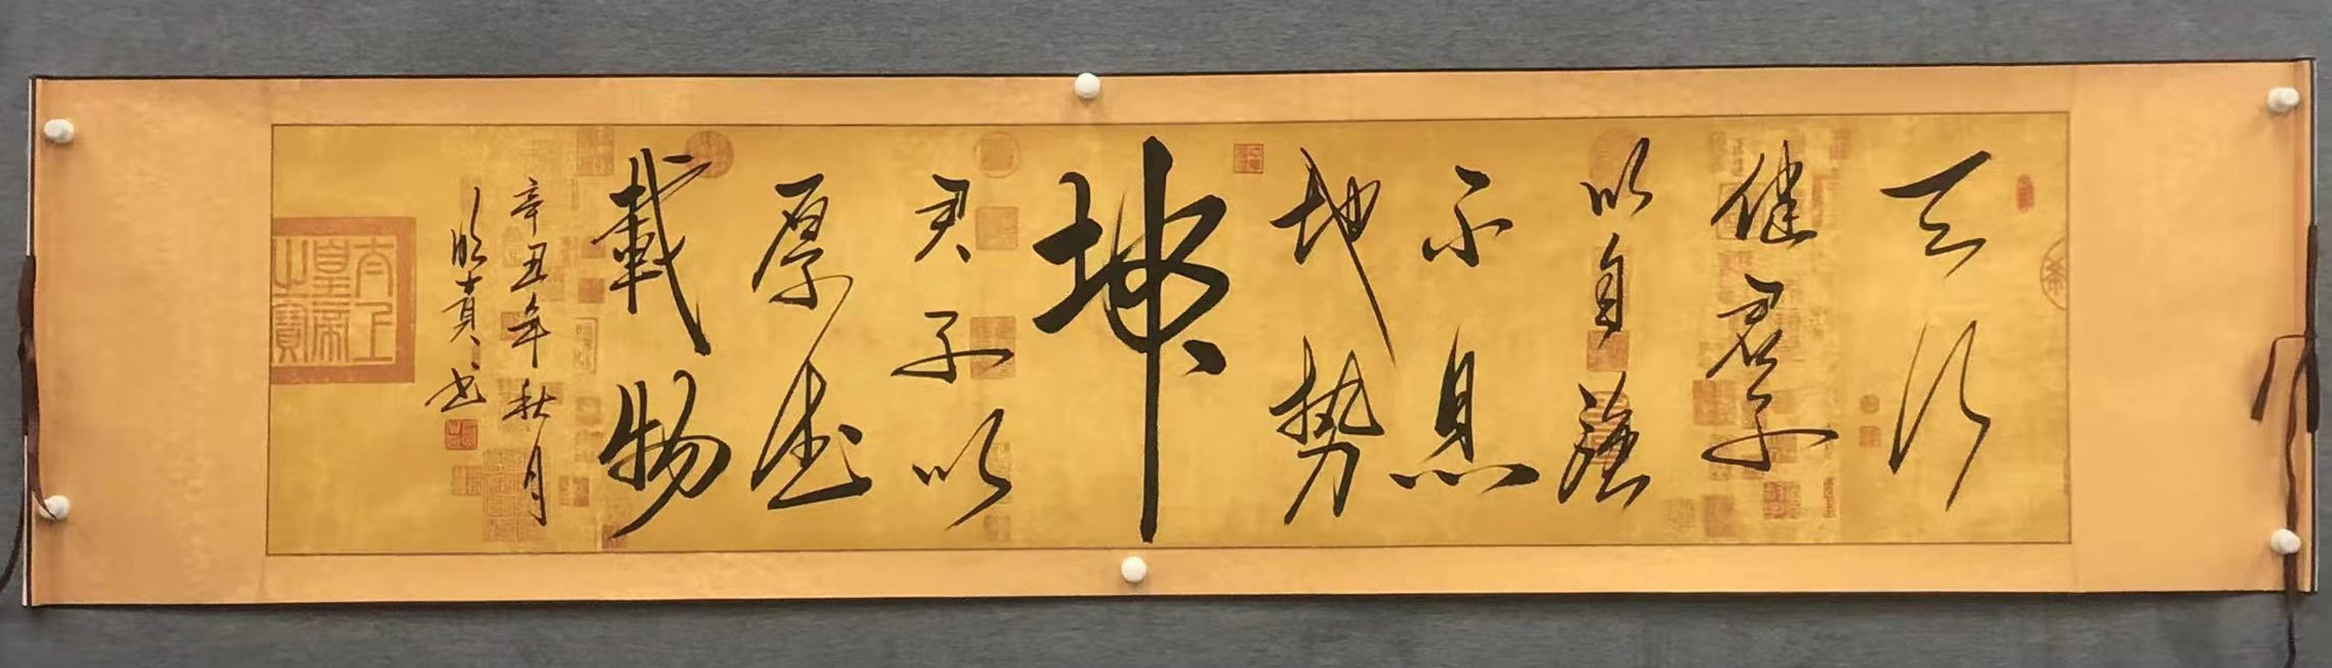 天行
健君子
以自强
不息
地势
坤
君子以
厚德
載物
辛丑年秋月
書
太上
皇帝
之寶